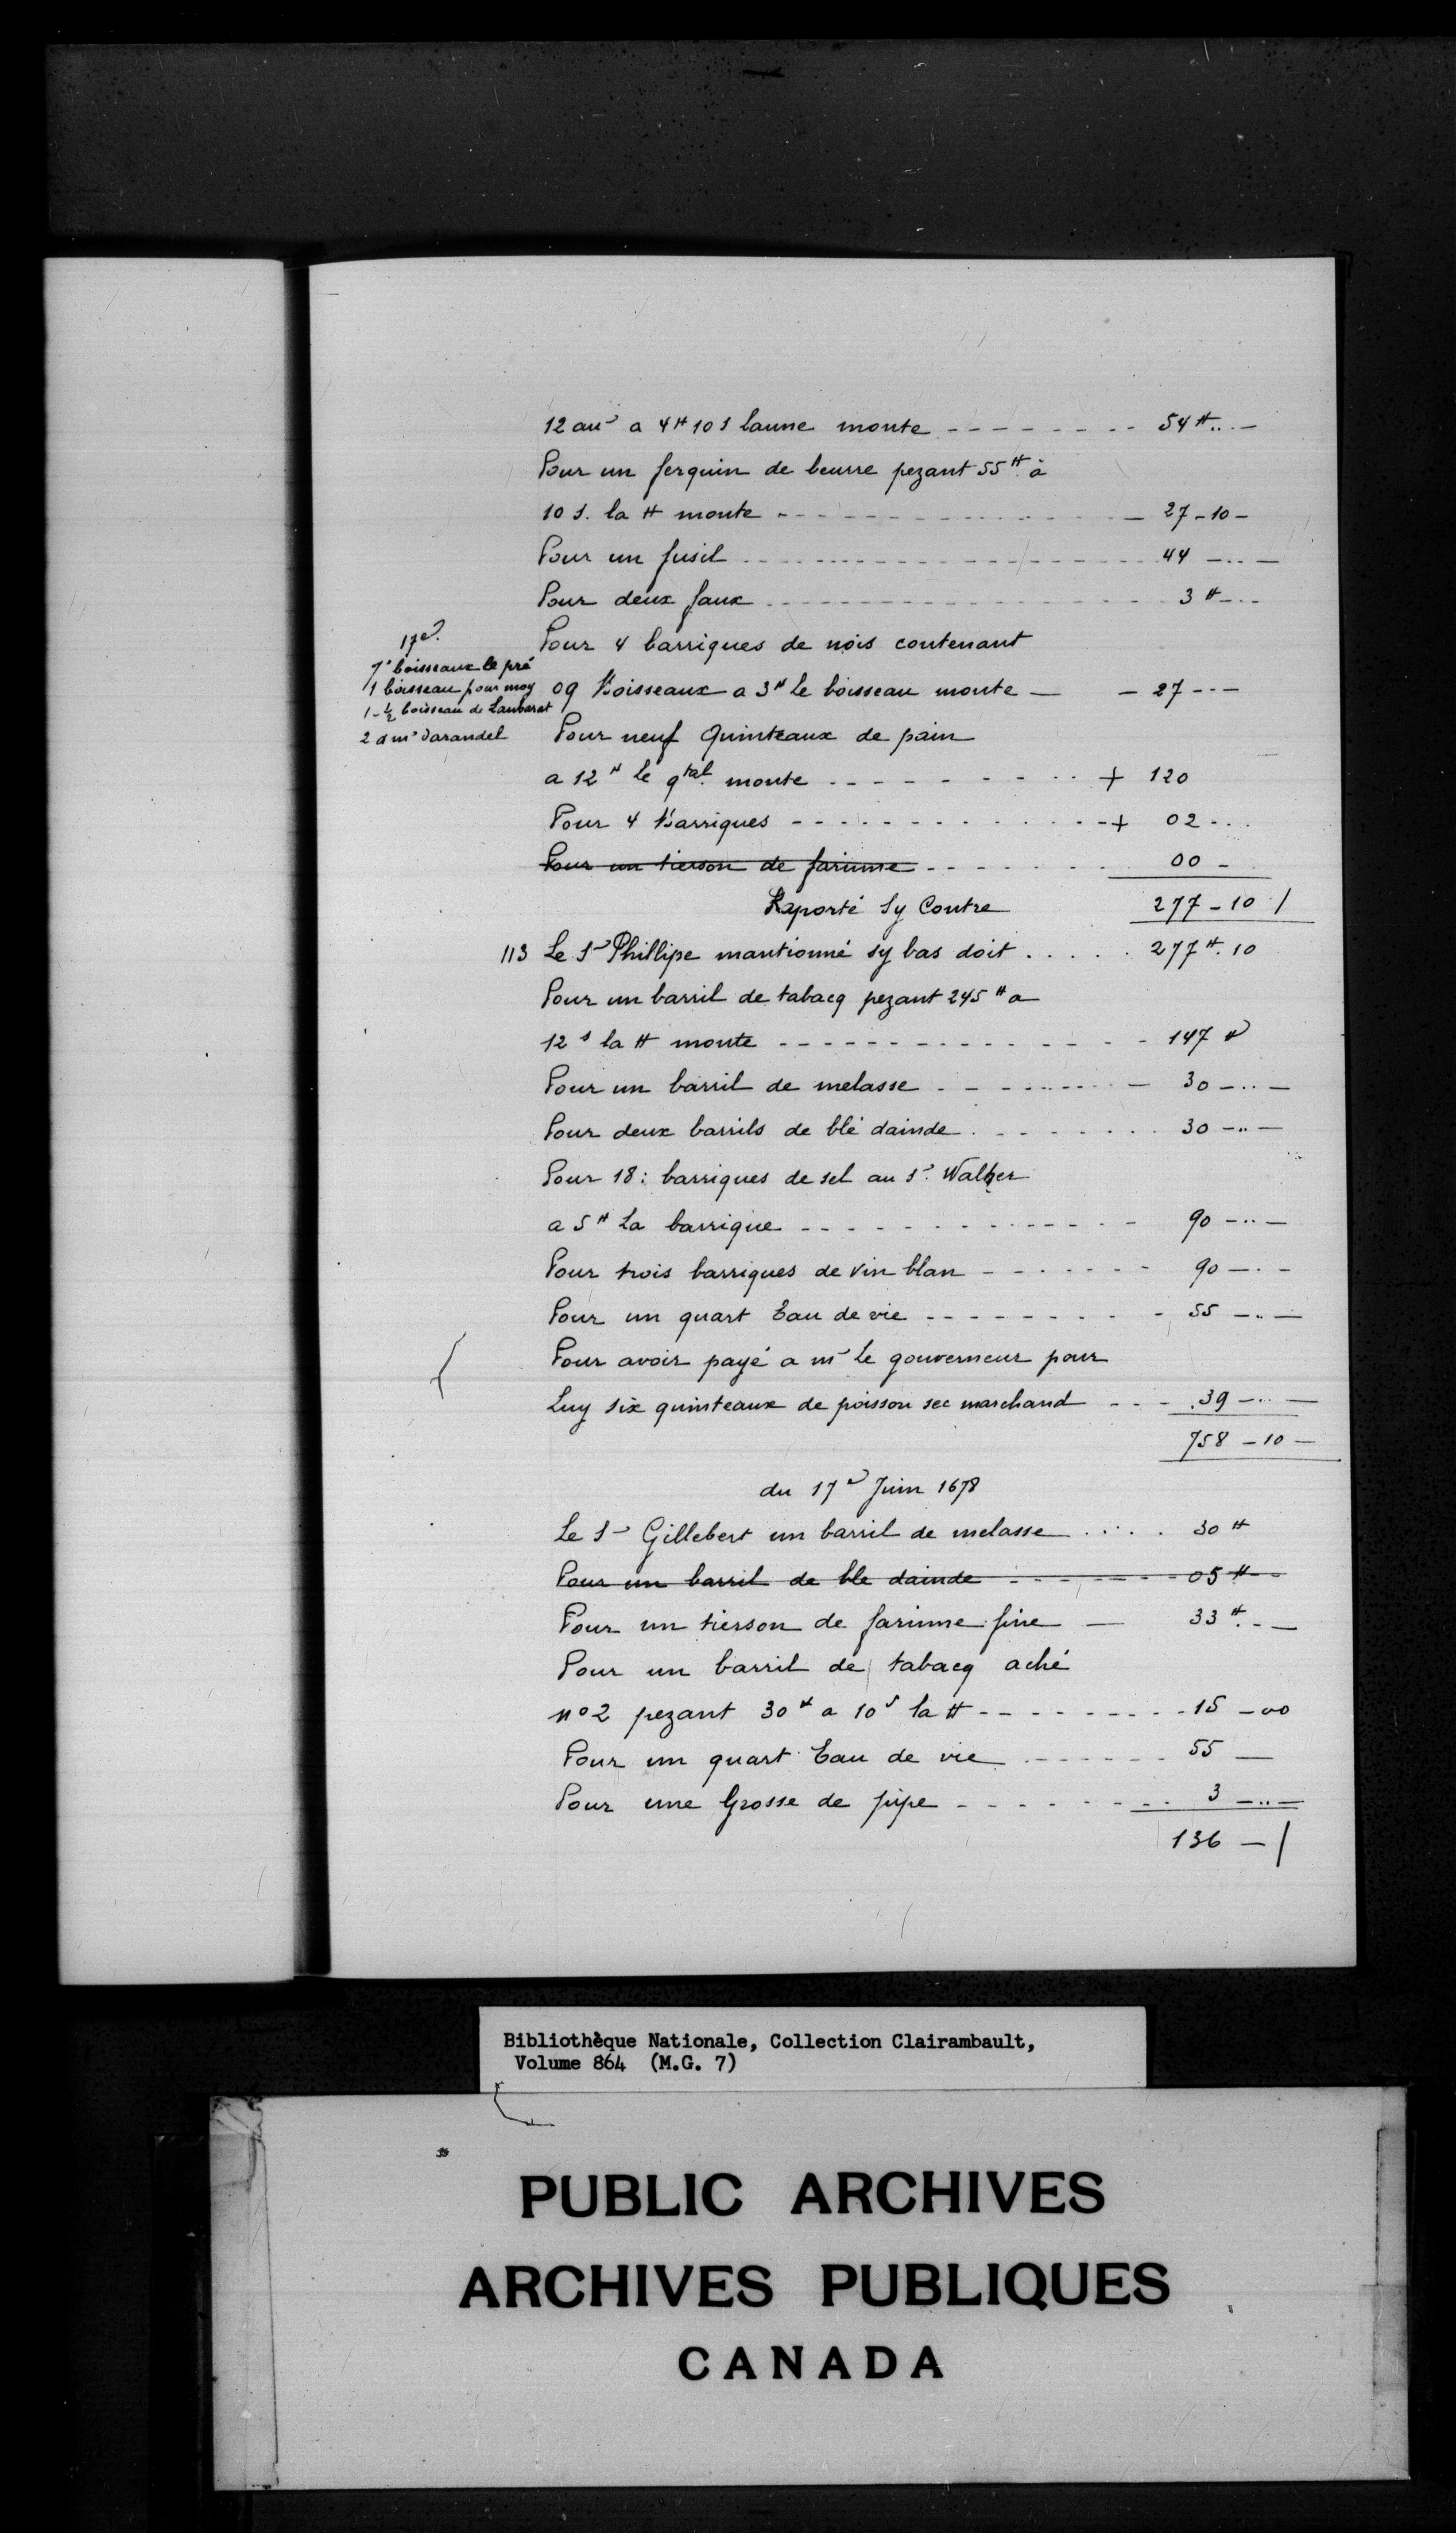 12 aus a 4 ₶ 10 s laune monte - - - - - - - - 54 ₶ .. -
Pour un ferquin de beurre pezant 55 ₶ à
10 s. la ₶ monte - - - - - - - - - - 27 - 10 -
Pour un fusil - - - - - - - - - - 44 - .. -
Pour deux faux - - - - - - - - - - 3 ₶ - . -
17e.
7 boisseaux le pré
1 boisseau pour moy
1 - ½ boisseau de Laubarat
2 a mr darandel
Pour 4 barriques de nois contenant
09 Boisseaux a 3 ₶ le boisseau monte - - 27 - - -
Pour neuf Quinteaux de pain
a 12 ₶ le qtal. monte - - - - - - - - + 120
Pour 4 Barriques - - - - - - - - - + 02 - . .
Pour un tierson de farinne - - - - - - 00 -
Raporté Sy Contre 277 - 10 /
113 Le Sr Phillipe mantionné sy bas doit . . . . . 277 ₶. 10
Pour un barril de tabacq pezant 245 ₶ a
12 s la ₶ monte - - - - - - - - - - 147 ₶
Pour un barril de melasse - - - - - - - 30 - .. -
Pour deux barrils de blé dainde . - - - - - - 30 - .. -
Pour 18 : barriques de sel au sr. Walker
a 5 ₶ La barrique - - - - - - - - - - 90 - .. -
Pour trois barriques de vin blan - - - - - - 90 - . -
Pour un quart Eau de vie - - - - - - - - 55 - .. -
Pour avoir payé a mr Le gouverneur pour
Luy six quinteaux de poisson sec marchand - - - 39 - .. -
758 - 10 -
du 17e Juin 1678
Le Sr Gillebert un barril de melasse . . . . . 30 ₶
Pour un barril de ble dainde - - - - - - 05 ₶ -
Pour un tierson de farinne fine - 33 ₶ . - -
Pour un barril de tabacq aché
no 2 pezant 30 ₶ a 10 s la ₶ - - - - - - - - 15 - 00
Pour un quart Eau de vie - - - - - - 55 -
Pour une Grosse de pipe - - - - - - - 3 - .. -
136 - /
Bibliothèque Nationale, Collection Clairambault,
Volume 864 (M.G. 7)
PUBLIC ARCHIVES
ARCHIVES PUBLIQUES
CANADA